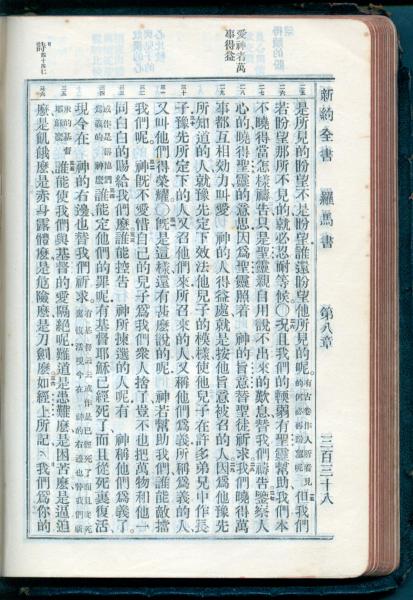 新約全書 羅馬書 第八章 三百三十八
是所見的盼望不是盼望誰還盼望他所見的呢有古卷作人所看見的何必再盼望呢但我們
若盼望那所不見的就必忍耐等候○況且我們的輭弱有聖靈幫助我們本
不曉得當怎樣禱告只是聖靈親自用說不出來的歎息替我們禱告鑒察人
心的曉得聖靈的意思因爲聖靈照着 神的旨意替聖徒祈求我們曉得萬
事都互相效力叫愛 神的人得益處就是按他旨意被召的人因爲他豫先
所知道的人就豫先定下效法他兒子的模樣使他兒子在許多弟兄中作長
子豫先所定下的人又召他們來所召來的人又稱他們爲義所稱爲義的人
又叫他們得榮耀○旣是這樣還有甚麽說的呢 神若幫助我們誰能敵擋
我們呢 神旣不愛惜自己的兒子爲我們衆人捨了豈不也把萬物和他一
同白白的賜給我們麽誰能控告 神所揀選的人呢有 神稱他們爲義了
或作是稱他們爲義的神麽誰能定他們的罪呢有基督耶穌已經死了而且從死裏復活
現今在 神的右邊也替我們祈求有基督云云或作是已經死了而且從死裏復活現今在神的右邊也替我們祈
求的基督耶穌麽誰能使我們與基督的愛隔絕呢難道是患難麽是困苦麽是逼迫
麽是飢餓麽是赤身露體麽是危險麽是刀劍麽如經上所記 我們爲你的
愛神者萬
事得益